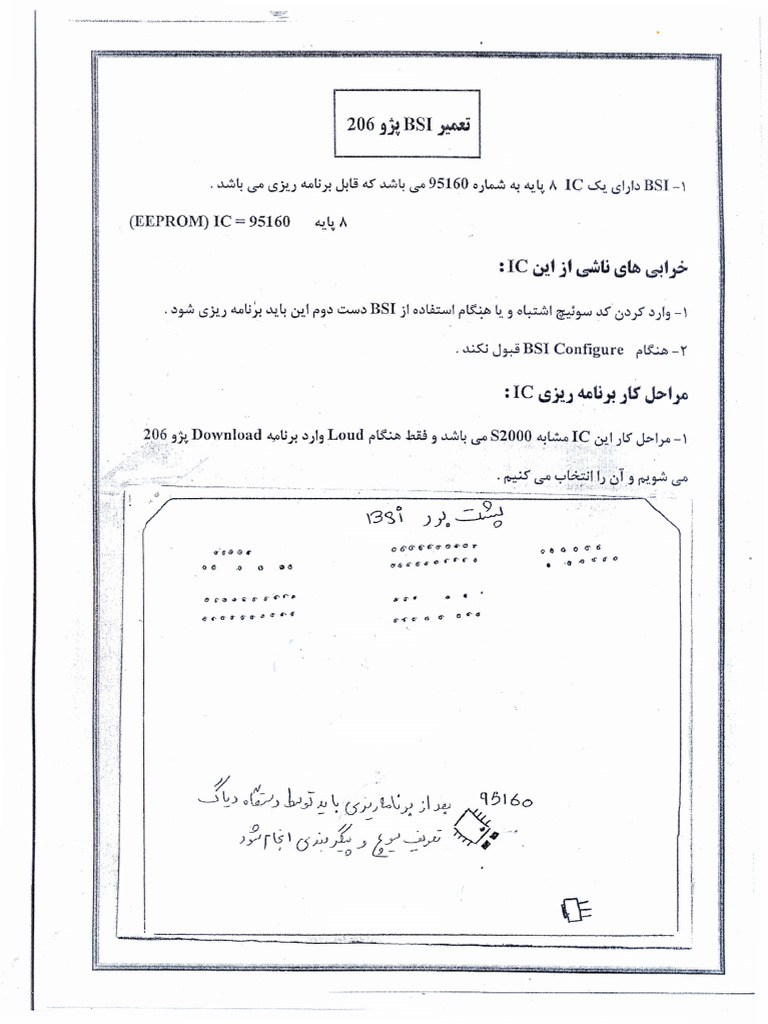 تعمیر BSI پژو 206
۱- BSI دارای یک IC ۸ پایه به شماره 95160 می باشد که قابل برنامه ریزی می باشد .
۸ پایه (EEPROM) IC = 95160
خرابی های ناشی از این IC :
۱- وارد کردن کد سوئیچ اشتباه و یا هنگام استفاده از BSI دست دوم این باید برنامه ریزی شود .
۲- هنگام BSI Configure قبول نکند .
مراحل کار برنامه ریزی IC :
۱- مراحل کار این IC مشابه S2000 می باشد و فقط هنگام Loud وارد برنامه Download پژو 206
می شویم و آن را انتخاب می کنیم .
پشت برد BSi
95160
بعد از برنامه ریزی باید توسط دستگاه دیاگ
تعریف سوئیچ و پیکربندی انجام شود